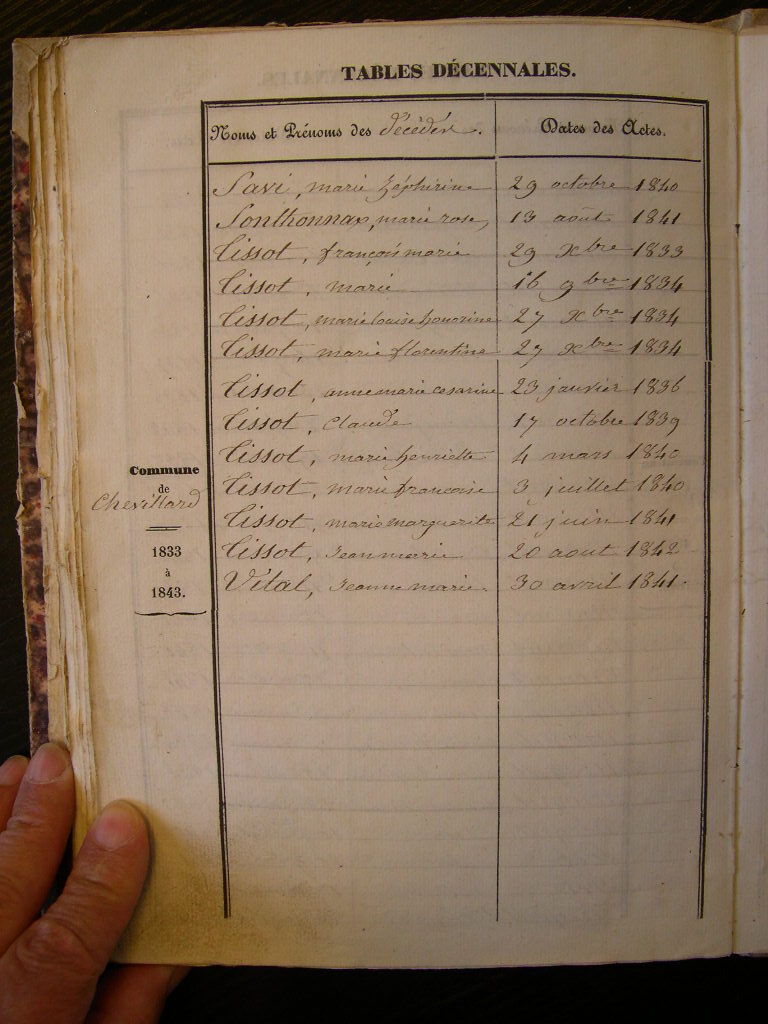 TABLES DÉCENNALES.
Noms et Prénoms des Décédés. Dates des Actes.
Savi, marie Zéphirine 29 octobre 1840
Sonthonnax, marie rose, 13 août 1841
Tissot, françois marie 29 Xbre 1833
Tissot, marie 16 9bre 1834
Tissot, marie louise honorine 27 Xbre 1834
Tissot, marie florentine 27 Xbre 1834
Tissot, anne marie cesarine 23 janvier 1836
Tissot, Claude 17 octobre 1839
Tissot, marie henriette 4 mars 1840
Tissot, marie francoise 3 juillet 1840
Tissot, marie marguerite 21 juin 1841
Tissot, Jean marie 20 aout 1842
Vital, Jeanne marie. 30 avril 1841.
Commune
de
Chevillard
1833
à
1843.